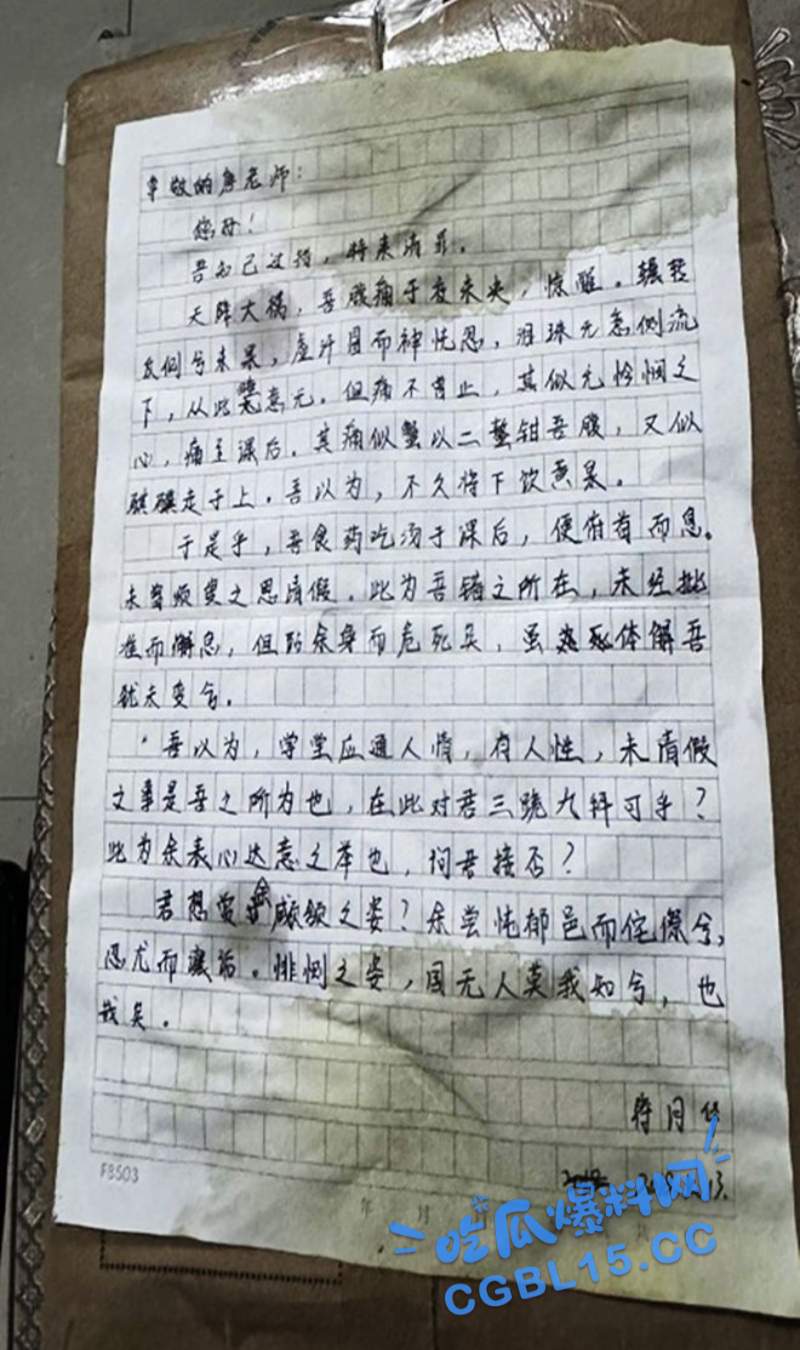 尊敬的詹老师：
您好！
吾知己过错，将来请罪。
天降大祸，吾腹痛于夜未央，惊醒。辗转
反侧兮未果，虚汗冒而神恍忽，泪珠无怠侧流
下，从此意无。但痛不曾止，其似无怜悯之
心，痛至课后。其痛似蟹以二螯钳吾腹，又似
骐骥走于上。吾以为，不久将下饮黄泉。
于是乎，吾食药吃汤于课后，便俯首而息。
未曾烦叟之思请假。此为吾错之所在，未经批
准而懈息，但阽余身而危死矣，虽体解吾
犹未变兮。
吾以为，学堂应通人情，有人性，未请假
之事是吾之所为也，在此对君三跪九拜可乎？
此为余表心达意之举也，问君接否？
君想赏余顑颔之姿？余尝忳郁邑而侘傺兮，
忍尤而攘诟。悱恻之姿，国无人莫我知兮，也
哉矣。
月
F8503
年 月 日
吃瓜爆料网
CGBL15.CC